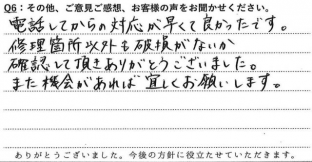 Q6：その他、ご意見ご感想、お客様の声をお聞かせください。
電話してからの対応が早くて良かったです。
修理箇所以外も破損がないか
確認して頂きありがとうございました。
また機会があれば宜しくお願いします。
ありがとうございました。今後の方針に役立たせていただきます。